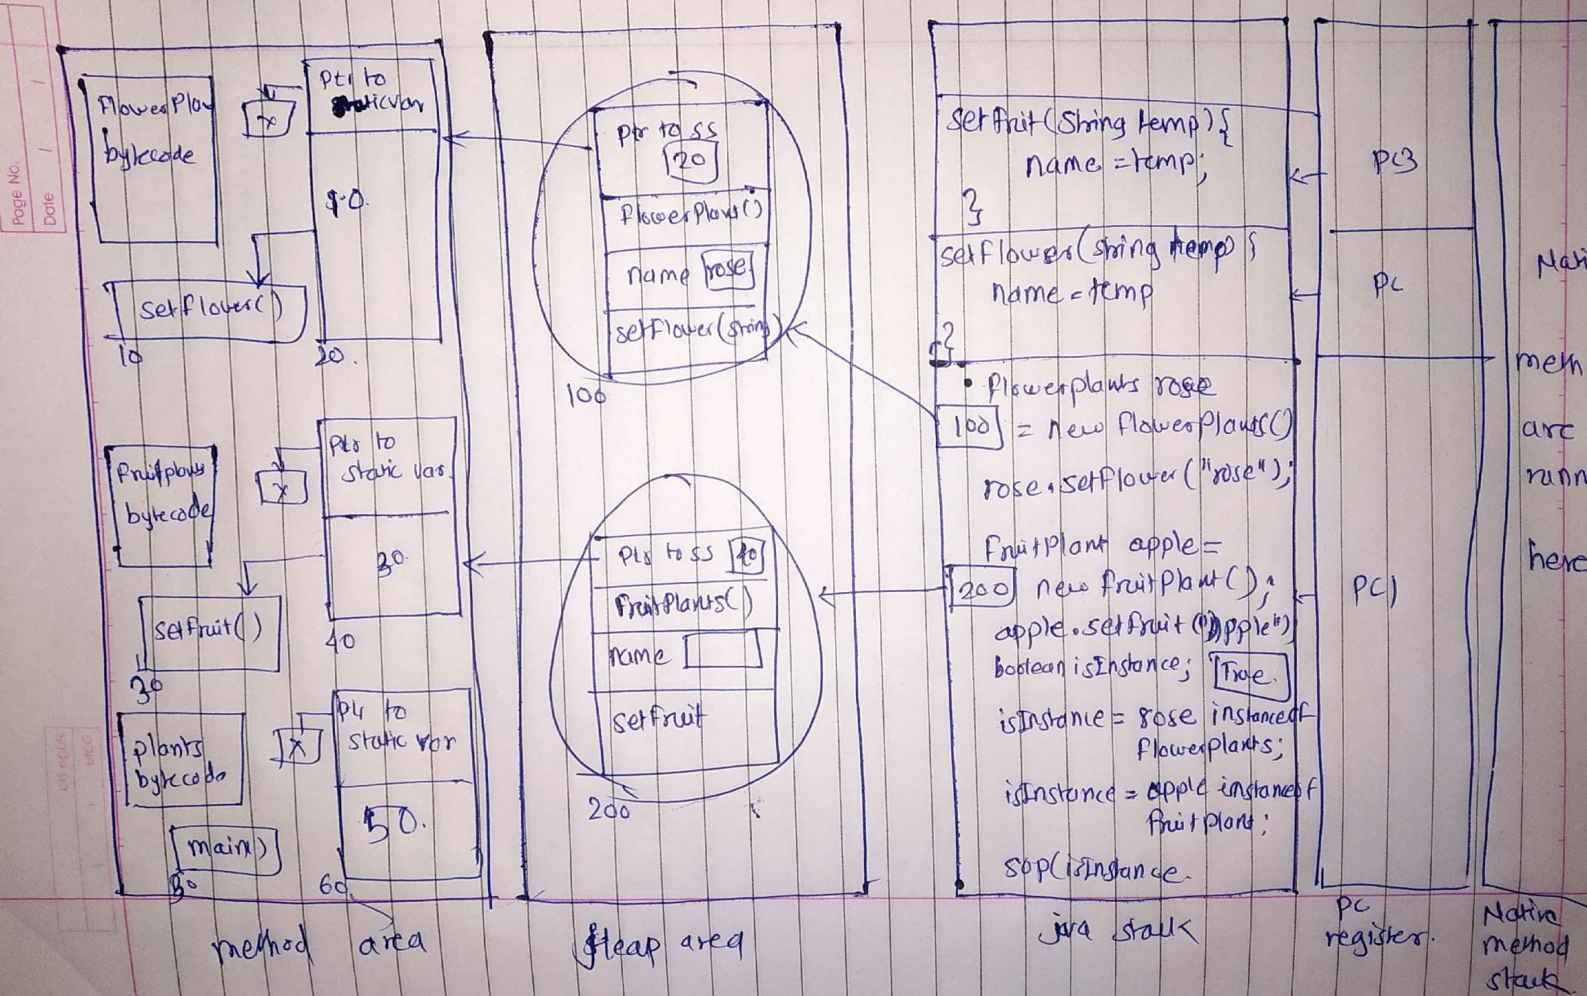 Page No.
Date
FlowerPla
bytecode
x
Ptr to
staticvar
10.
setflower()
10
20.
fruitplans
bytecode
x
Ptr to
static var
30.
setfruit()
30
40
plants
bytecode
x
Ptr to
static var
50.
main()
60
method area
Ptr to ss
20
FlowerPlants()
name rose
setFlower(string)
100
Ptr to ss 40
FruitPlants()
name
setfruit
200
Heap area
setfruit(String temp){
name = temp;
}
setflower(string temp) {
name = temp
}
flowerplants rose
100 = new flowerPlants()
rose.setFlower("rose");
FruitPlant apple =
200 new fruitPlant();
apple.setfruit("Apple")
boolean isInstance; True.
isInstance = rose instanceof
flowerplants;
isInstance = apple instanceof
fruitplant;
sop(isInstance.
java stack
PC3
PC
PC1
PC
register.
Nati
meth
are
runn
here
Native
method
stack